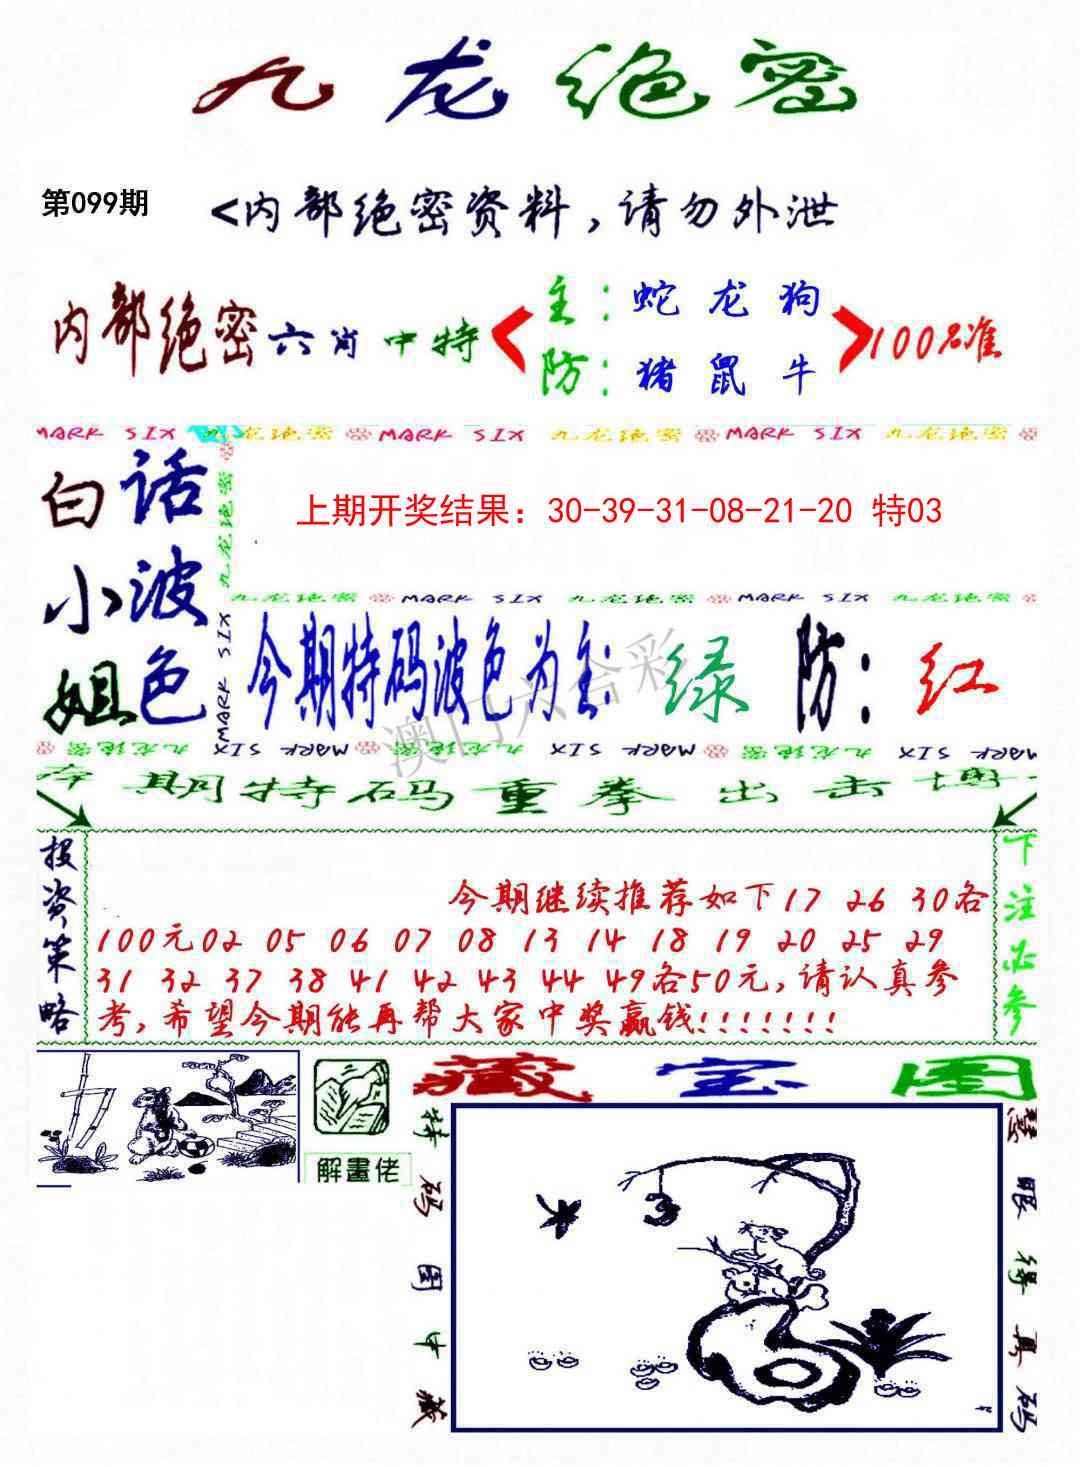 九龙绝密
第099期
<内部绝密资料，请勿外泄
内部绝密六肖中特
主：蛇 龙 狗
防：猪 鼠 牛
100%准
MARK SIX 九龙绝密 MARK SIX 九龙绝密 MARK SIX 九龙绝密
白话
小波
姐色
九龙绝密
MARK SIX
上期开奖结果：30-39-31-08-21-20 特03
九龙绝密 MARK SIX 九龙绝密 MARK SIX 九龙绝密
今期特码波色为主：绿 防：红
澳门六合彩
九龙绝密 MARK SIX 九龙绝密 MARK SIX 九龙绝密 MARK SIX
本期特码重拳出击博一
投资策略
今期继续推荐如下17 26 30各
100元02 05 06 07 08 13 14 18 19 20 25 29
31 32 37 38 41 42 43 44 49各50元,请认真参
考,希望今期能再帮大家中奖赢钱!!!!!!!
下注必参
解畫佬
藏宝图
特码图中藏
慧眼得真码